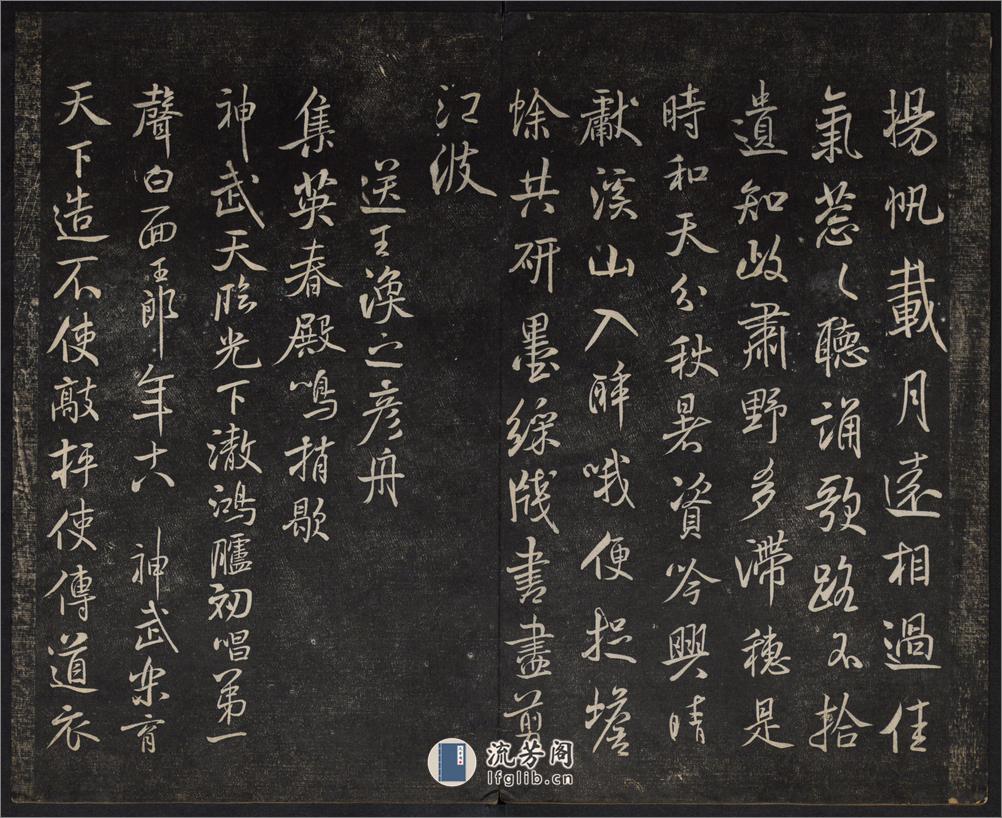 揚帆載月遠相過佳
氣葱〻聽誦歌路不拾
遺知政肅野多滯穗是
時和天分秋暑資吟興晴
獻溪山入醉哦便捉蟾
蜍共研墨綵牋書盡剪
江波
送王渙之彦舟
集英春殿鳴捎歇
神武天臨光下澈鴻臚初唱第一
聲白面王郎年十八神武樂育
天下造不使敲枰使傳道衣
流芳阁
lfglib.cn